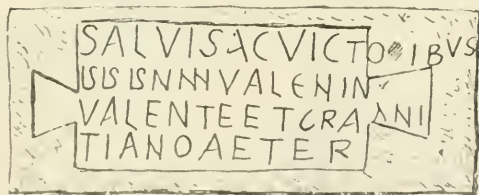 SALVISACVICTO IBVS
ISISISNNNVALENIN
VALENTEETGRAANI
TIANOAETER